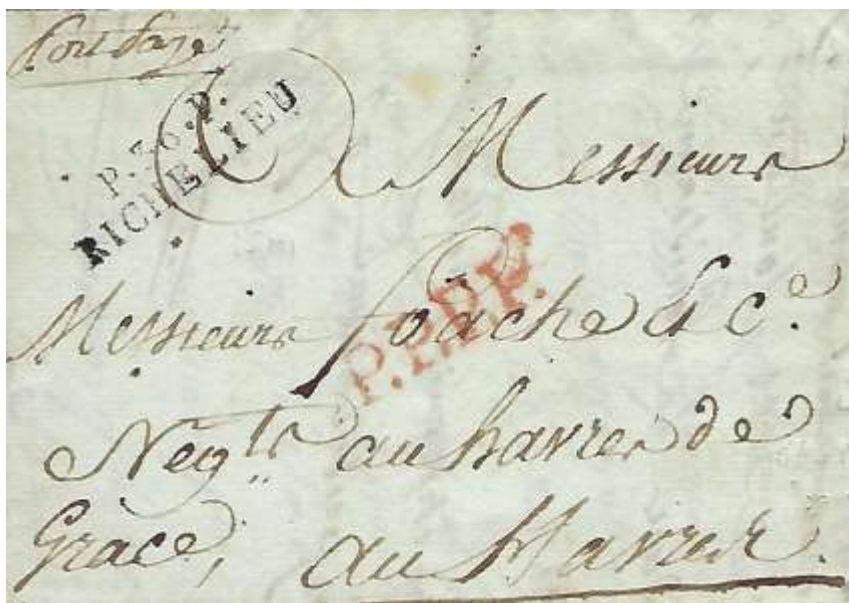 Port Payé
P.36.P.
RICHELIEU
Messieurs
P.P.P.P.
Messieurs foache Et Ce.
Negts au havre de
Grace, au Havre